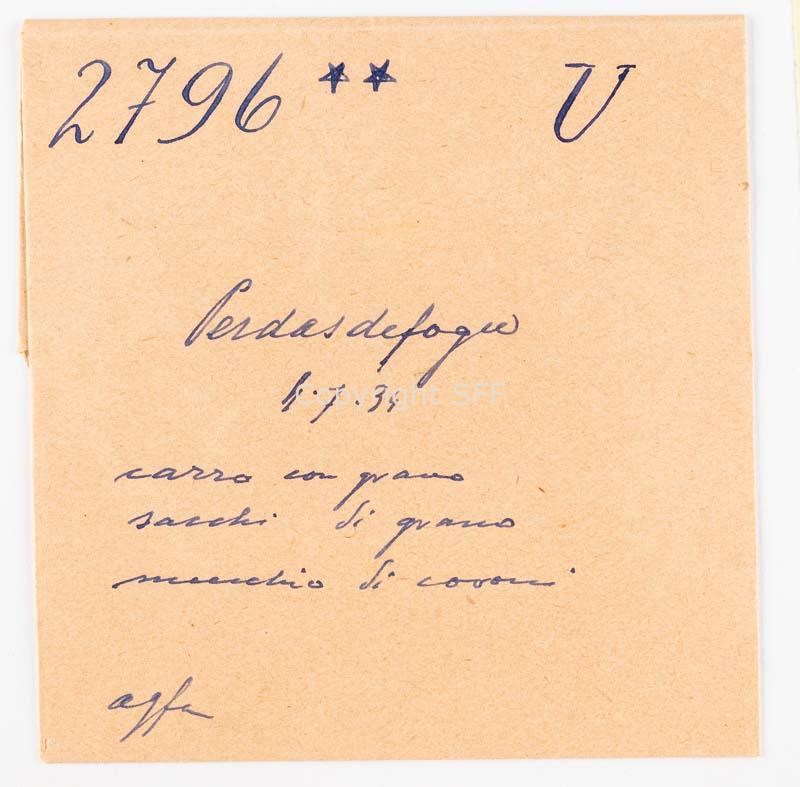 2796 ** U
Perdasdefogu
4.7.34
Copyright SFF
carro con grano
sacchi di grano
mucchio di covoni
agfa